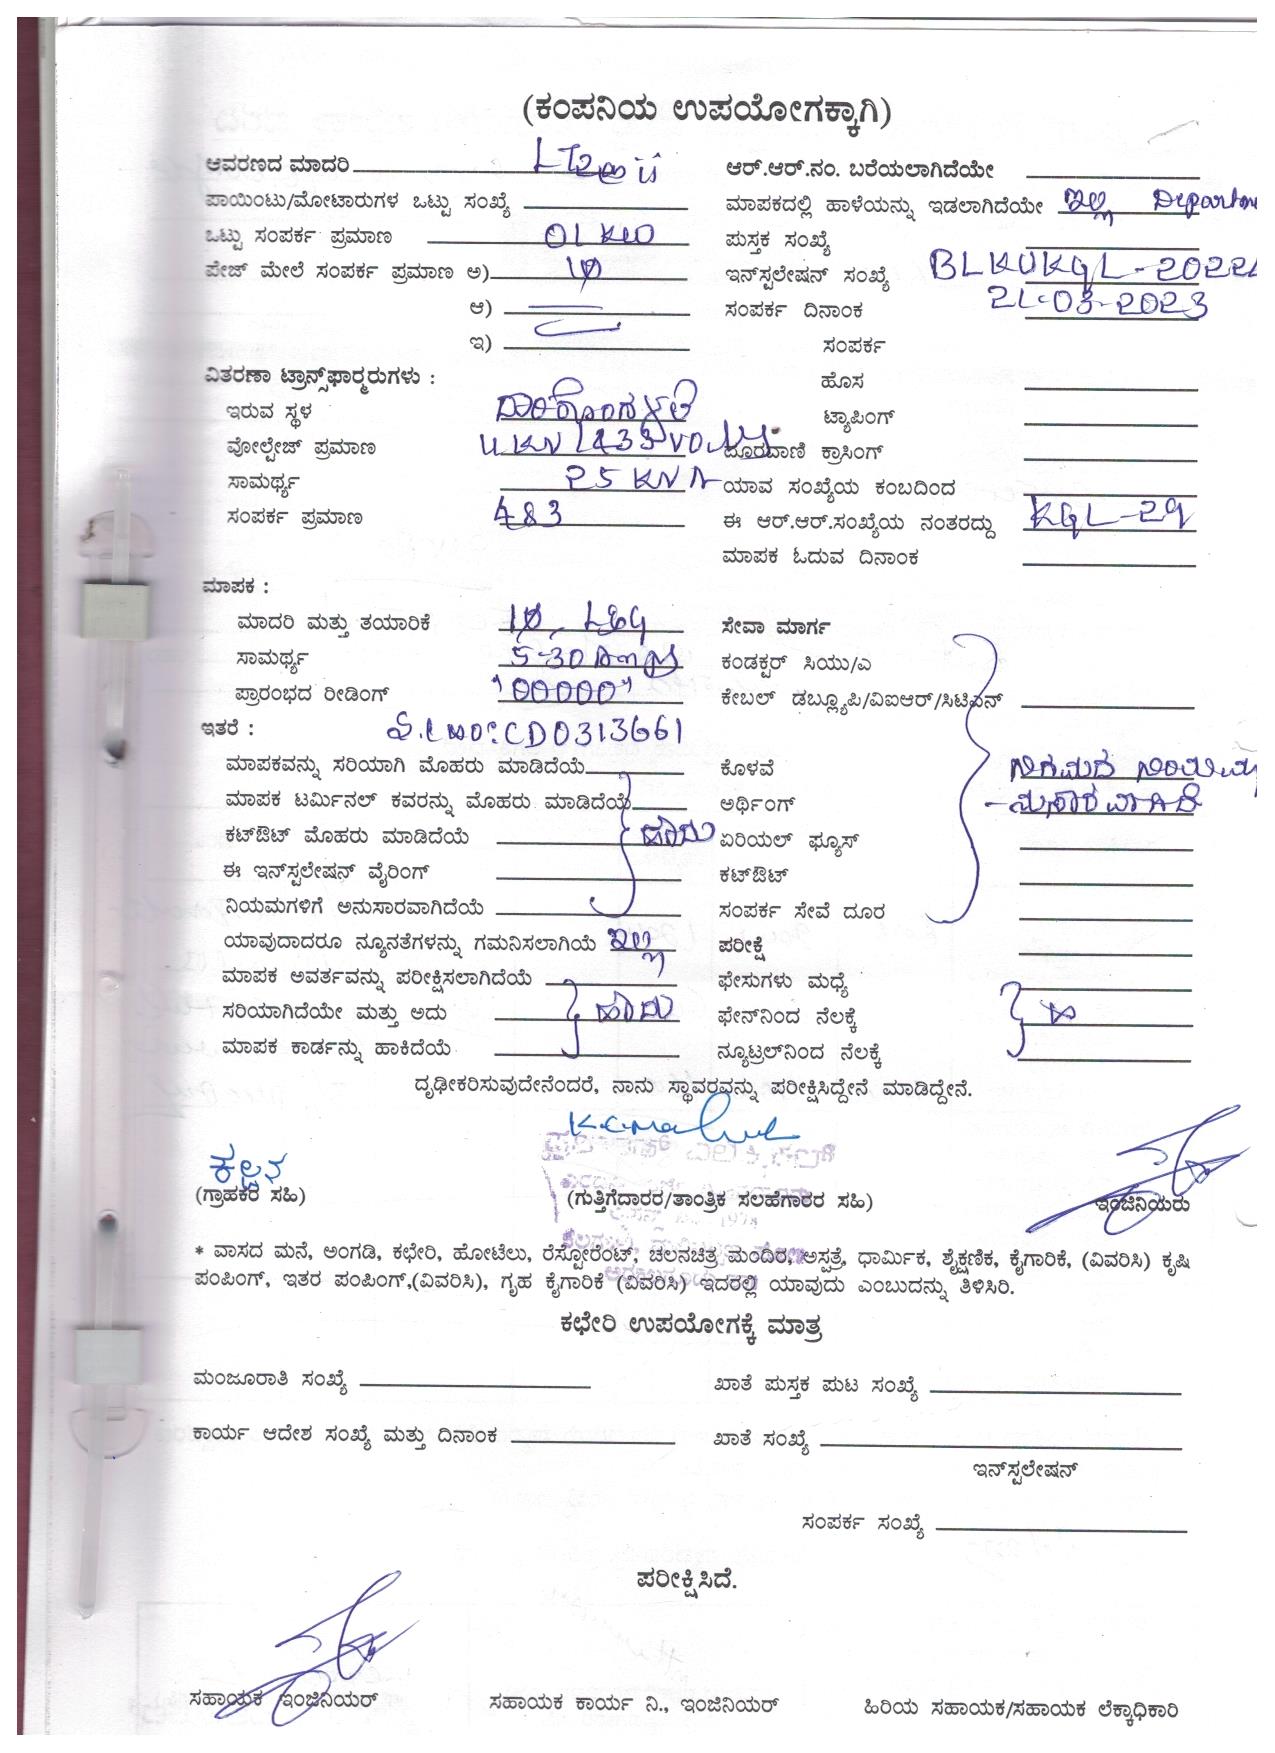 (ಕಂಪನಿಯ ಉಪಯೋಗಕ್ಕಾಗಿ)
ಆವರಣದ ಮಾದರಿ LT2 ii ಆರ್.ಆರ್.ನಂ. ಬರೆಯಲಾಗಿದೆಯೇ
ಪಾಯಿಂಟು/ಮೋಟಾರುಗಳ ಒಟ್ಟು ಸಂಖ್ಯೆ ಮಾಪಕದಲ್ಲಿ ಹಾಳೆಯನ್ನು ಇಡಲಾಗಿದೆಯೇ ಇಲ್ಲ Departme
ಒಟ್ಟು ಸಂಪರ್ಕ ಪ್ರಮಾಣ 01 KW ಪುಸ್ತಕ ಸಂಖ್ಯೆ
ಪೇಜ್ ಮೇಲೆ ಸಂಪರ್ಕ ಪ್ರಮಾಣ ಅ) 1Ø ಇನ್‌ಸ್ಟಲೇಷನ್ ಸಂಖ್ಯೆ BLKUKGL-2022
ಆ) ಸಂಪರ್ಕ ದಿನಾಂಕ 21-03-2023
ಇ) ಸಂಪರ್ಕ
ವಿತರಣಾ ಟ್ರಾನ್ಸ್‌ಫಾರ್‍ಮರುಗಳು : ಹೊಸ
ಇರುವ ಸ್ಥಳ ಟ್ಯಾಪಿಂಗ್
ವೋಲ್ಟೇಜ್ ಪ್ರಮಾಣ 11KV/433VOLTS ದೂರವಾಣಿ ಕ್ರಾಸಿಂಗ್
ಸಾಮರ್ಥ್ಯ 25 KVA ಯಾವ ಸಂಖ್ಯೆಯ ಕಂಬದಿಂದ
ಸಂಪರ್ಕ ಪ್ರಮಾಣ 483 ಈ ಆರ್.ಆರ್.ಸಂಖ್ಯೆಯ ನಂತರದ್ದು KGL-29
ಮಾಪಕ ಓದುವ ದಿನಾಂಕ
ಮಾಪಕ :
ಮಾದರಿ ಮತ್ತು ತಯಾರಿಕೆ 1Ø, L&G ಸೇವಾ ಮಾರ್ಗ
ಸಾಮರ್ಥ್ಯ 5-30 Amps ಕಂಡಕ್ಟರ್ ಸಿಯು/ಎ
ಪ್ರಾರಂಭದ ರೀಡಿಂಗ್ "00000" ಕೇಬಲ್ ಡಬ್ಲ್ಯೂಪಿ/ವಿಐಆರ್/ಸಿಟಿಎಸ್
ಇತರೆ : S.L NO: CD0313661
ಮಾಪಕವನ್ನು ಸರಿಯಾಗಿ ಮೊಹರು ಮಾಡಿದೆಯೆ ಕೊಳವೆ ನಿಗಮದ ನಿಯಮ
ಮಾಪಕ ಟರ್ಮಿನಲ್ ಕವರನ್ನು ಮೊಹರು ಮಾಡಿದೆಯೆ ಅರ್ಥಿಂಗ್ -ನುಸಾರವಾಗಿದೆ
ಕಟ್‌ಔಟ್ ಮೊಹರು ಮಾಡಿದೆಯೆ ಹೌದು ಏರಿಯಲ್ ಫ್ಯೂಸ್
ಈ ಇನ್‌ಸ್ಟಲೇಷನ್ ವೈರಿಂಗ್ ಕಟ್‌ಔಟ್
ನಿಯಮಗಳಿಗೆ ಅನುಸಾರವಾಗಿದೆಯೆ ಸಂಪರ್ಕ ಸೇವೆ ದೂರ
ಯಾವುದಾದರೂ ನ್ಯೂನತೆಗಳನ್ನು ಗಮನಿಸಲಾಗಿಯೆ ಇಲ್ಲ ಪರೀಕ್ಷೆ
ಮಾಪಕ ಅವರ್ತವನ್ನು ಪರೀಕ್ಷಿಸಲಾಗಿದೆಯೆ ಫೇಸುಗಳು ಮಧ್ಯೆ
ಸರಿಯಾಗಿದೆಯೇ ಮತ್ತು ಅದು ಹೌದು ಫೇಸ್‌ನಿಂದ ನೆಲಕ್ಕೆ
ಮಾಪಕ ಕಾರ್ಡನ್ನು ಹಾಕಿದೆಯೆ ನ್ಯೂಟ್ರಲ್‌ನಿಂದ ನೆಲಕ್ಕೆ
ದೃಢೀಕರಿಸುವುದೇನೆಂದರೆ, ನಾನು ಸ್ಥಾವರವನ್ನು ಪರೀಕ್ಷಿಸಿದ್ದೇನೆ ಮಾಡಿದ್ದೇನೆ.
ಕಲ್ಪನ
(ಗ್ರಾಹಕರ ಸಹಿ) (ಗುತ್ತಿಗೆದಾರರ/ತಾಂತ್ರಿಕ ಸಲಹೆಗಾರರ ಸಹಿ) ಇಂಜಿನಿಯರು
* ವಾಸದ ಮನೆ, ಅಂಗಡಿ, ಕಛೇರಿ, ಹೋಟೆಲು, ರೆಸ್ಟೋರೆಂಟ್, ಚಲನಚಿತ್ರ ಮಂದಿರ, ಅಸ್ಪತ್ರೆ, ಧಾರ್ಮಿಕ, ಶೈಕ್ಷಣಿಕ, ಕೈಗಾರಿಕೆ, (ವಿವರಿಸಿ) ಕೃಷಿ
ಪಂಪಿಂಗ್, ಇತರ ಪಂಪಿಂಗ್,(ವಿವರಿಸಿ), ಗೃಹ ಕೈಗಾರಿಕೆ (ವಿವರಿಸಿ) ಇದರಲ್ಲಿ ಯಾವುದು ಎಂಬುದನ್ನು ತಿಳಿಸಿರಿ.
ಕಛೇರಿ ಉಪಯೋಗಕ್ಕೆ ಮಾತ್ರ
ಮಂಜೂರಾತಿ ಸಂಖ್ಯೆ ಖಾತೆ ಪುಸ್ತಕ ಪುಟ ಸಂಖ್ಯೆ
ಕಾರ್ಯ ಆದೇಶ ಸಂಖ್ಯೆ ಮತ್ತು ದಿನಾಂಕ ಖಾತೆ ಸಂಖ್ಯೆ
ಇನ್‌ಸ್ಟಲೇಷನ್
ಸಂಪರ್ಕ ಸಂಖ್ಯೆ
ಪರೀಕ್ಷಿಸಿದೆ.
ಸಹಾಯಕ ಇಂಜಿನಿಯರ್ ಸಹಾಯಕ ಕಾರ್ಯ ನಿ., ಇಂಜಿನಿಯರ್ ಹಿರಿಯ ಸಹಾಯಕ/ಸಹಾಯಕ ಲೆಕ್ಕಾಧಿಕಾರಿ